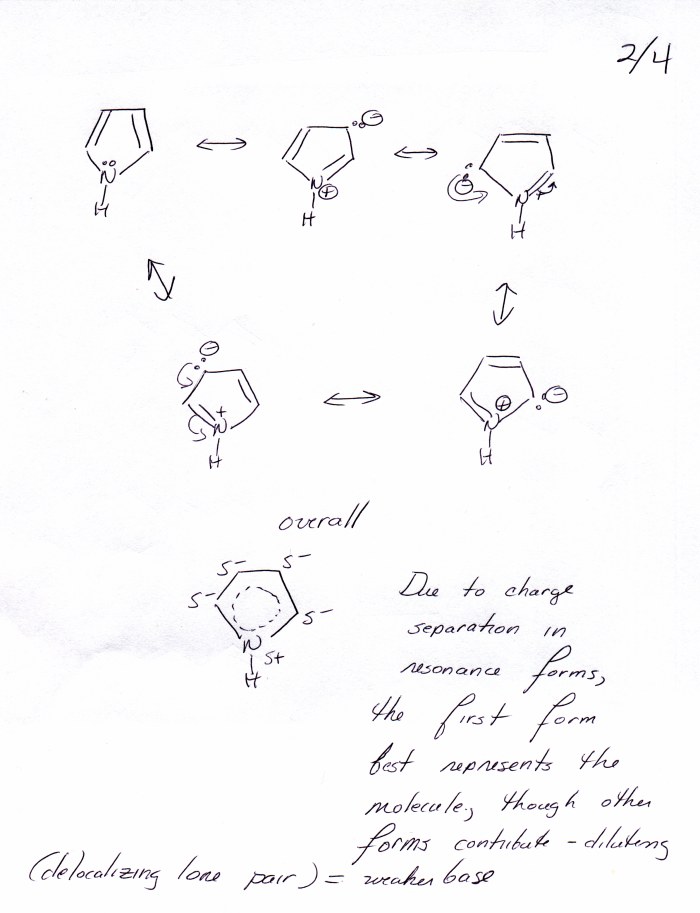 2/4
N
H
⊖
N ⊕
H
⊖
N +
H
⊖
N +
H
⊕
⊖
N
H
overall
δ- δ-
δ- δ-
N
H δ+
Due to charge
separation in
resonance forms,
the first form
best represents the
molecule, though other
forms contribute - diluting
(delocalizing lone pair) = weaker base